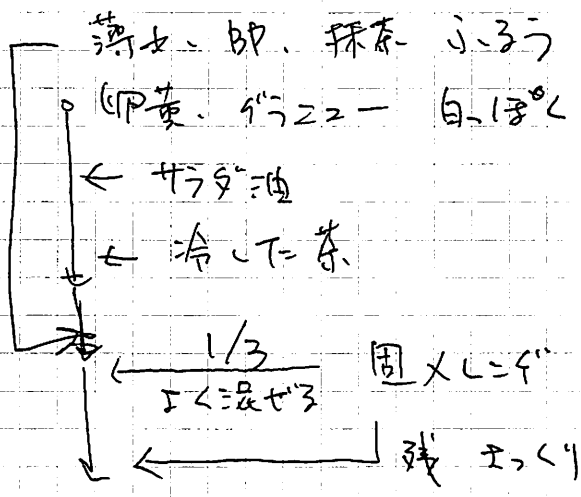 薄力、BP、抹茶 ふるう
卵黄、グラニュー 白っぽく
サラダ油
冷した茶
1/3
よく混ぜる
固メレンゲ
残 さっくり